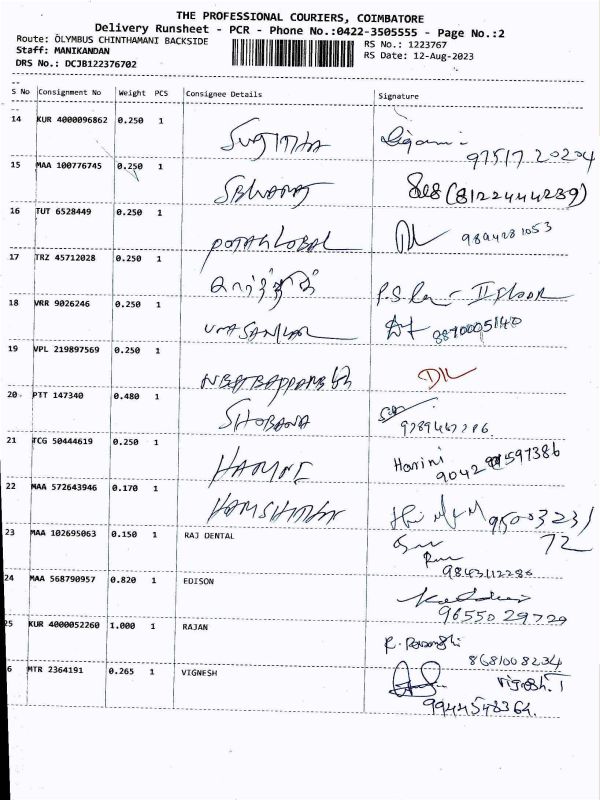 THE PROFESSIONAL COURIERS, COIMBATORE
Delivery Runsheet - PCR - Phone No.:0422-3505555 - Page No.:2
Route: OLYMBUS CHINTHAMANI BACKSIDE
RS No.: 1223767
Staff: MANIKANDAN
RS Date: 12-Aug-2023
DRS No.: DCJB122376702
S No Consignment No Weight PCS Consignee Details Signature
14 KUR 4000096862 0.250 1
97517 20204
15 MAA 100776745 0.250 1
(8122444239)
16 TUT 6528449 0.250 1
9894281053
17 TRZ 45712028 0.250 1 கார்த்திக்
II Floor
18 VRR 9026246 0.250 1 UMASANKAR
8870005140
19 VPL 219897569 0.250 1
20 PTT 147340 0.480 1 SHOBANA
21 TCG 50444619 0.250 1
Harini
597386
22 MAA 572643946 0.170 1
95003231
72
23 MAA 102695063 0.150 1 RAJ DENTAL
9843112286
24 MAA 568790957 0.820 1 EDISON
96550 29729
25 KUR 4000052260 1.000 1 RAJAN
8681008234
6 MTR 2364191 0.265 1 VIGNESH
9944548364.